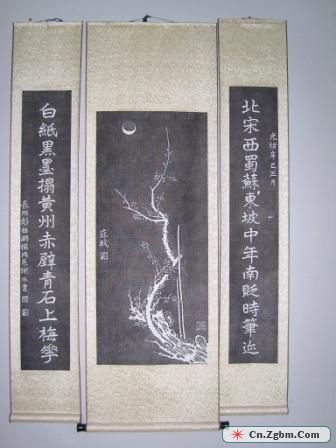 北宋西蜀蘇東坡中年南貶時筆迹
光緒辛巳三月
蘇軾
白紙黑墨搨黃州赤壁青石上梅花
Cn.Zgbm.com